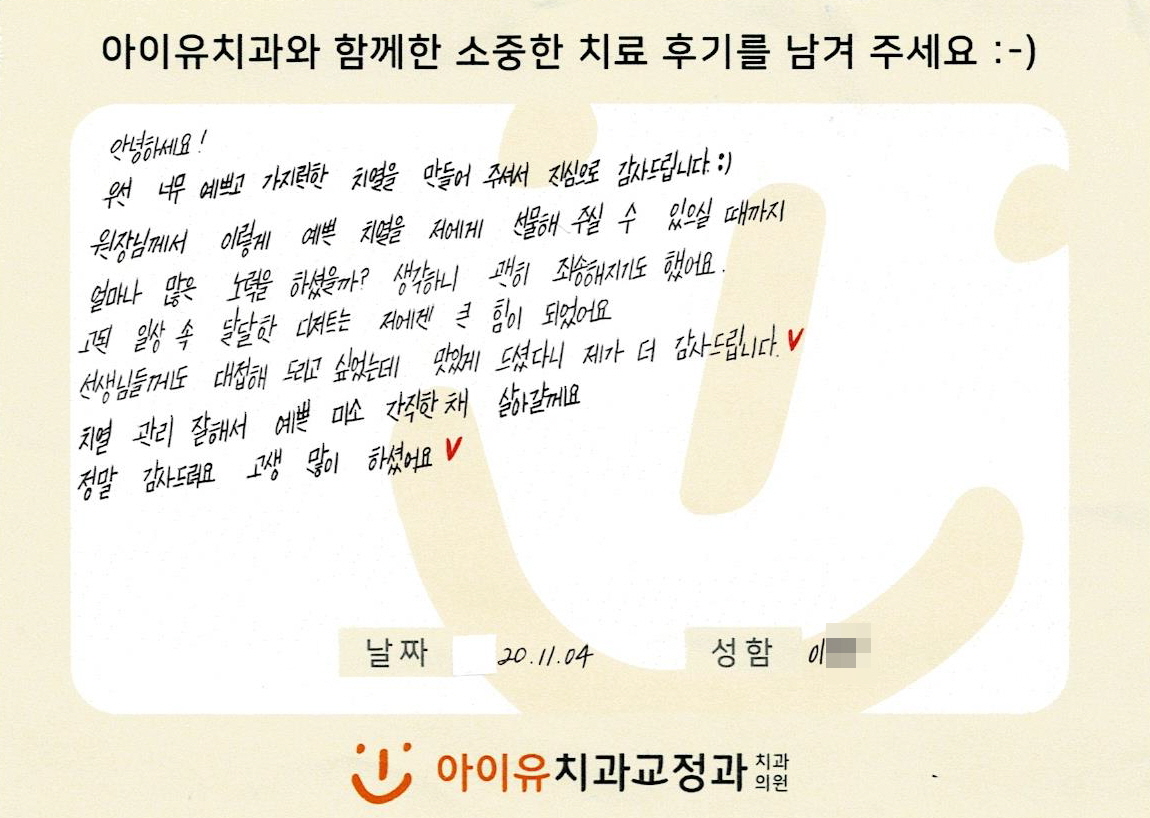 아이유치과와 함께한 소중한 치료 후기를 남겨 주세요 :-)
안녕하세요!
우선 너무 예쁘고 가지런한 치열을 만들어 주셔서 진심으로 감사드립니다 :)
원장님께서 이렇게 예쁜 치열을 저에게 선물해 주실 수 있으실 때까지
얼마나 많은 노력을 하셨을까? 생각하니 괜히 죄송해지기도 했어요.
고된 일상 속 달달한 디저트는 저에겐 큰 힘이 되었어요
선생님들께도 대접해 드리고 싶었는데 맛있게 드셨다니 제가 더 감사드립니다.
치열 관리 잘해서 예쁜 미소 간직한 채 살아갈게요
정말 감사드려요 고생 많이 하셨어요
날짜 20.11.04 성함 이
아이유치과교정과 치과
의원